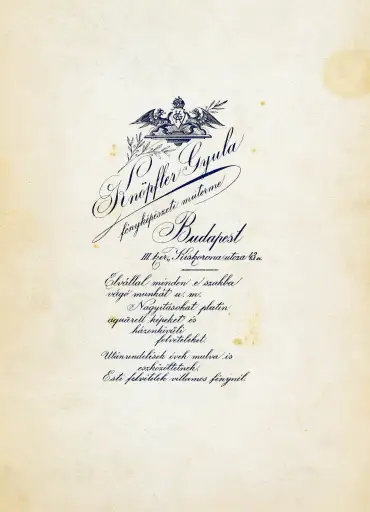 Knöpfler Gyula
fényképészeti műterme
Budapest
III. ker., Kiskorona utcza 43 sz.
Elvállal minden e szakba
vágó munkát u. m.
Nagyitásokat platin
aquarell képeket és
házonkivüli
felvételeket.
Utánrendelések évek mulva is
eszközöltetnek.
Esti felvételek villamos fénynél.